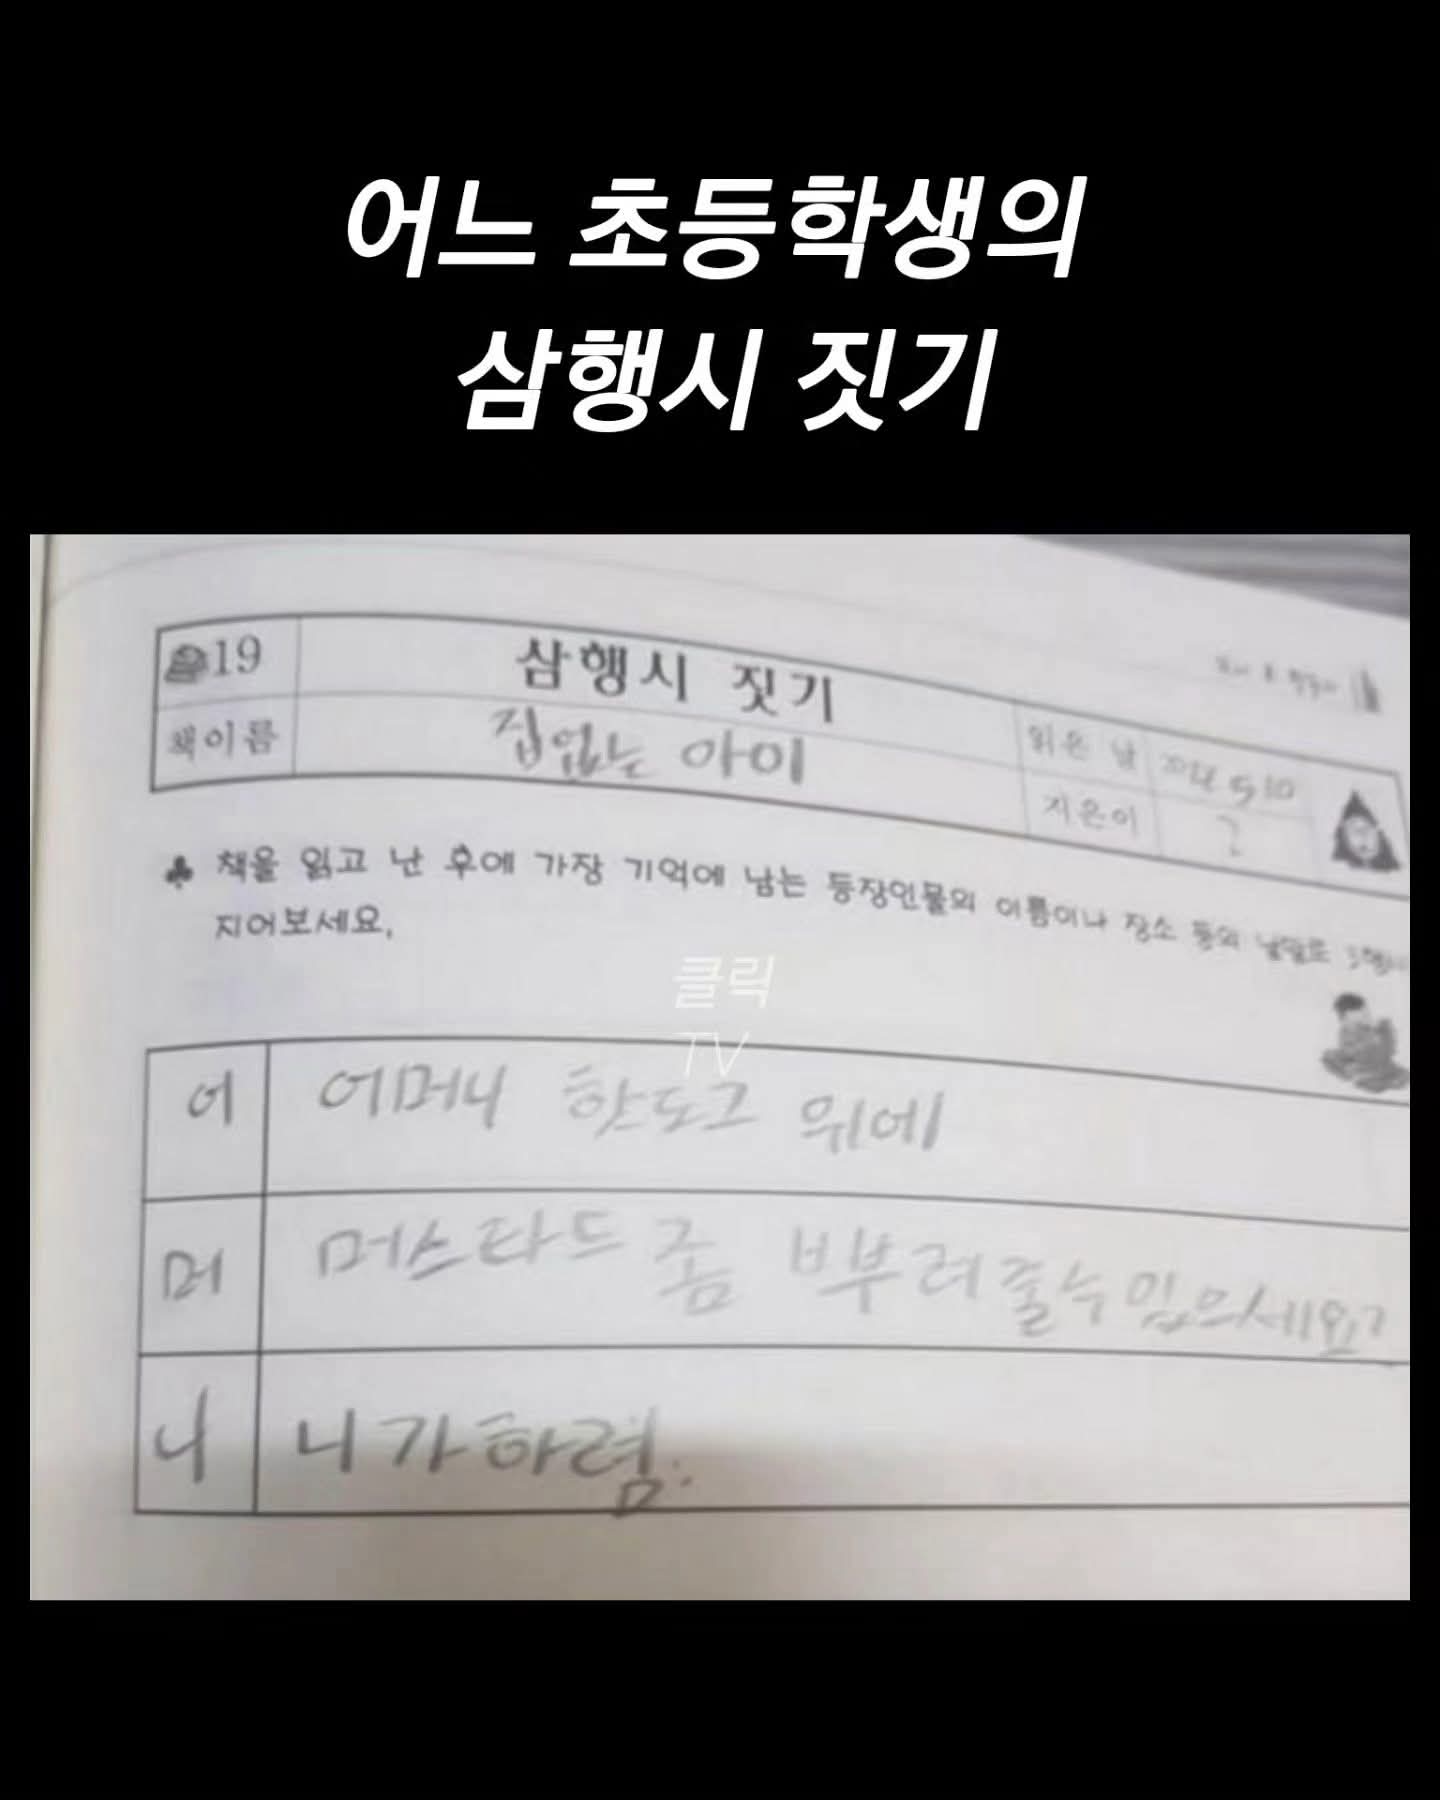 어느 초등학생의
삼행시 짓기
19 삼행시 짓기
책이름 집없는 아이 읽은 날 2014 5 10
지은이 ?
♣ 책을 읽고 난 후에 가장 기억에 남는 등장인물의 이름이나 장소 등의 낱말로 3행시
지어보세요.
클릭
TV
어 어머니 핫도그 위에
머 머스타드 좀 뿌려줄수 있으세요?
니 니가하렴.